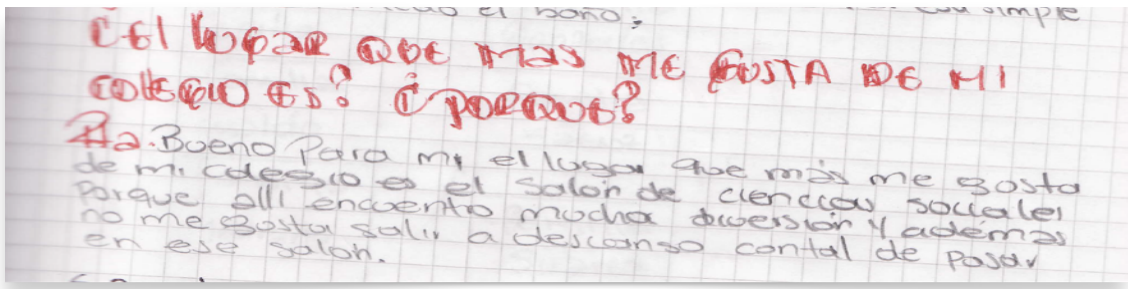 el baño.
simple
¿El lugar que mas me gusta de mi
colegio es? ¿porque?
Rta. Bueno Para mi el lugar que más me gosta
de mi colegio es el salon de ciencias sociales
Porque alli encuentro mucha diversión y además
no me gosta salir a descanso contal de pasar
en ese salon.